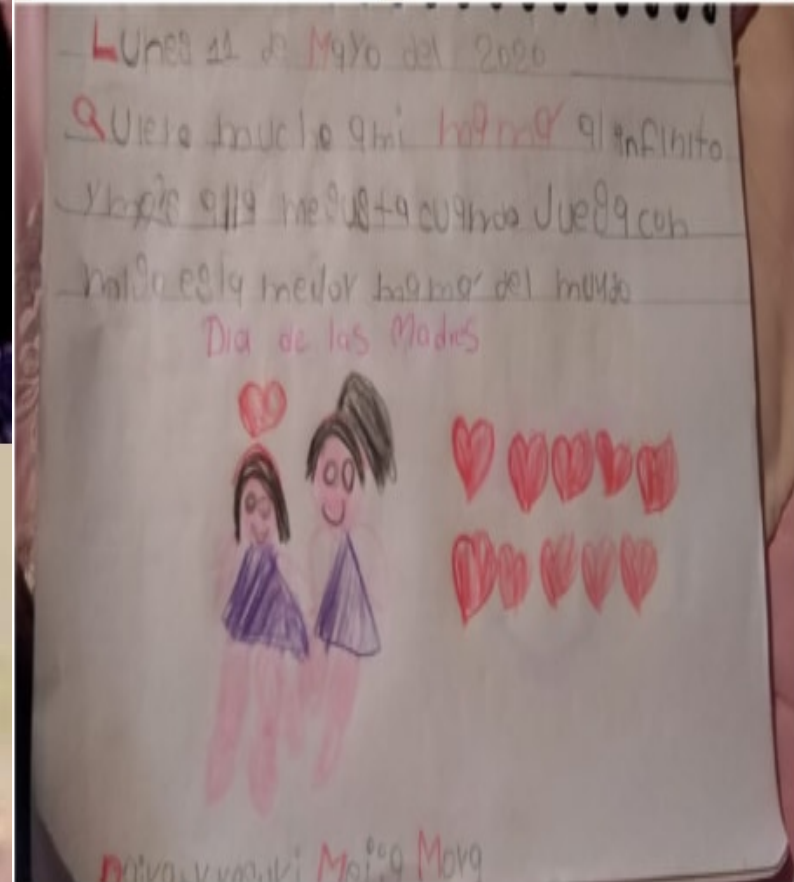 Lunes 11 de Mayo del 2020
Quiero mucho ami mamá al infinito
y más alla megusta cuando Juega con
esla meJor mamá del mundo
Dia de las Madres
Mora